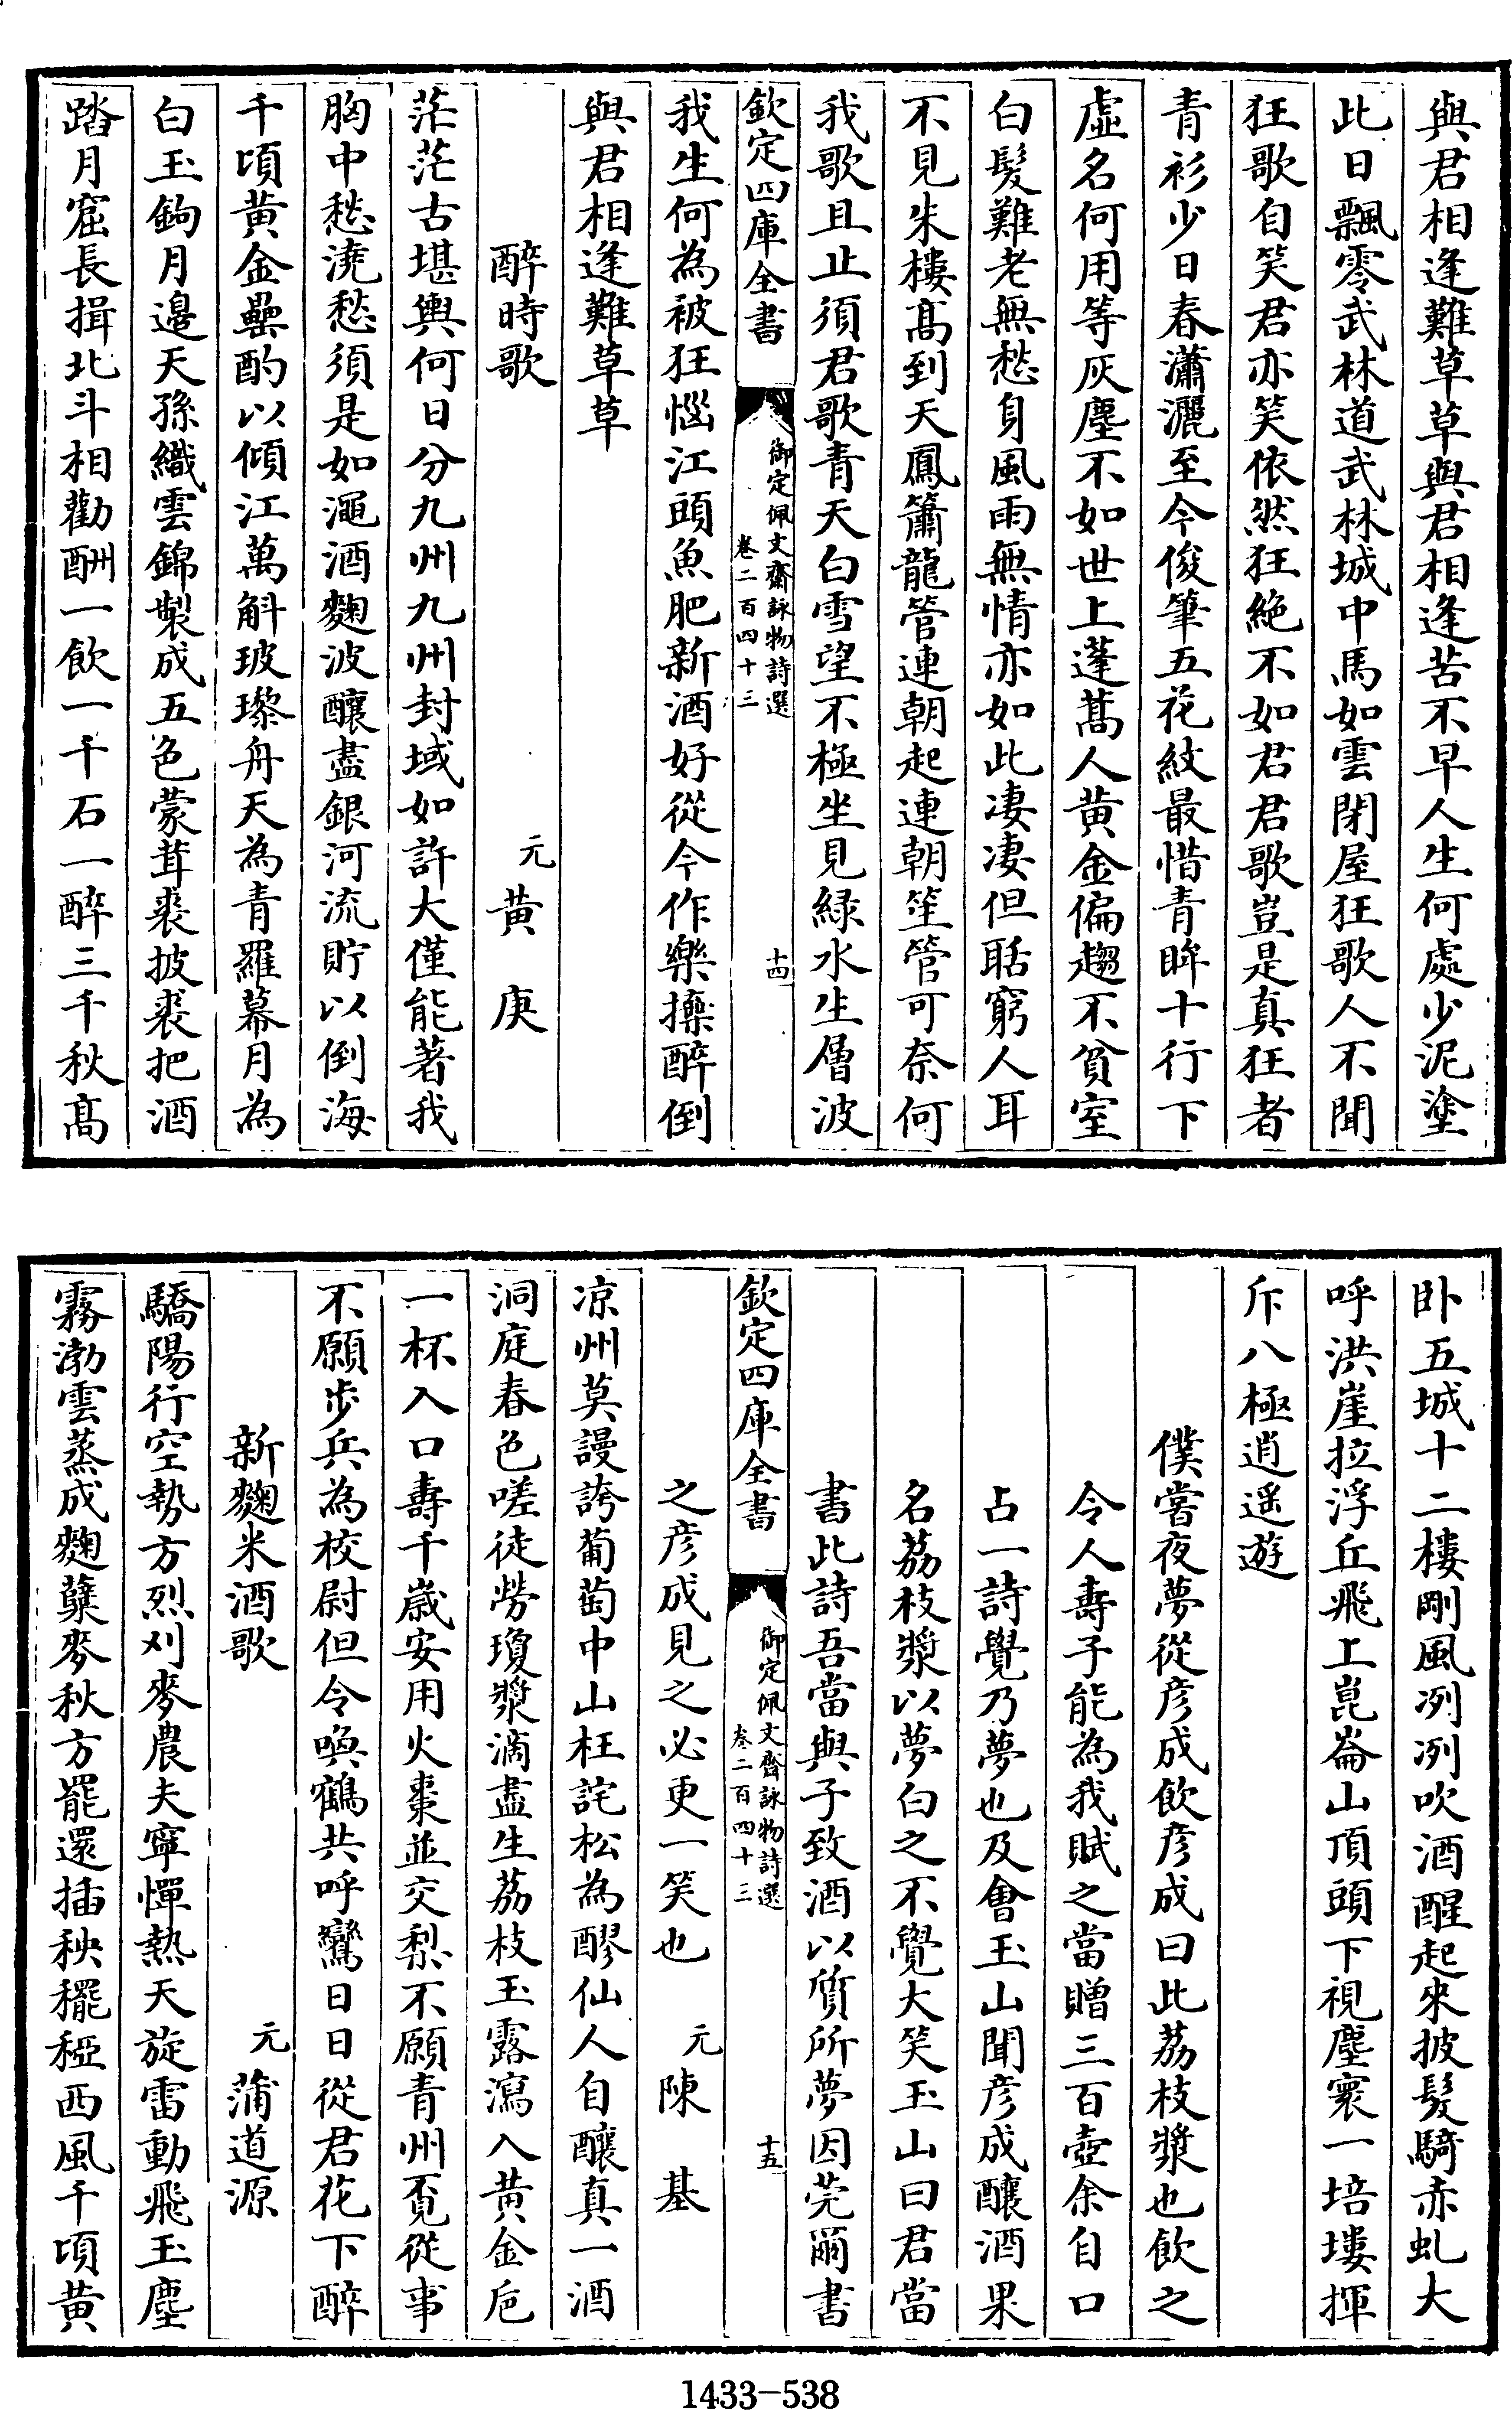 與君相逢難草草與君相逢苦不早人生何處少泥塗
此日飄零武林道武林城中馬如雲閉屋狂歌人不聞
狂歌自笑君亦笑依然狂絶不如君君歌豈是真狂者
青衫少日春瀟灑至今俊筆五花紋最惜青眸十行下
虛名何用等灰塵不如世上蓬蒿人黄金偏趨不貧室
白髮難老無愁身風雨無情亦如此凄凄但聒窮人耳
不見朱樓髙到天鳳簫龍管連朝起連朝笙管可奈何
我歌且止須君歌青天白雪望不極坐見緑水生層波
欽定四庫全書
御定佩文齋詠物詩選
卷二百四十三
十四
我生何為被狂惱江頭魚肥新酒好從今作樂擽醉倒
與君相逢難草草
醉時歌
元黄庚
茫茫古堪輿何日分九州九州封域如許大僅能著我
胸中愁澆愁須是如澠酒麴波釀盡銀河流貯以倒海
千頃黄金罍酌以傾江萬斛玻瓈舟天為青羅幕月為
白玉鉤月邉天孫織雲錦製成五色蒙茸裘披裘把酒
踏月窟長揖北斗相勸酬一飲一千石一醉三千秋髙
卧五城十二樓剛風冽冽吹酒醒起來披髮騎赤虬大
呼洪崖拉浮丘飛上崑崙山頂頭下視塵寰一培塿揮
斥八極逍遥遊
僕嘗夜夢從彦成飲彦成曰此茘枝漿也飲之
令人壽子能為我賦之當贈三百壺余自口
占一詩覺乃夢也及會玉山聞彦成釀酒果
名茘枝漿以夢白之不覺大笑玉山曰君當
書此詩吾當與子致酒以質所夢因莞爾書
欽定四庫全書
御定佩文齋詠物詩選
卷二百四十三
十五
之彦成見之必更一笑也
元陳基
凉州莫謾誇葡萄中山枉詫松為醪仙人自釀真一酒
洞庭春色嗟徒勞瓊漿滴盡生茘枝玉露瀉入黄金巵
一杯入口壽千嵗安用火棗並交梨不願青州覓從事
不願步兵為校尉但令喚鶴共呼鸞日日從君花下醉
新麴米酒歌
元蒲道源
驕陽行空勢方烈刈麥農夫寧憚熱天旋雷動飛玉塵
霧渤雲蒸成麴蘖麥秋方罷還插秧䆉稏西風千頃黄
1433-538